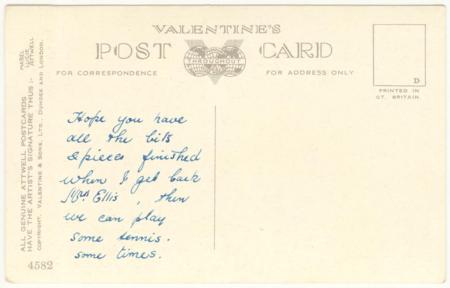 VALENTINE'S
POST CARD
THROUGHOUT
FOR CORRESPONDENCE
FOR ADDRESS ONLY
D
PRINTED IN
GT. BRITAIN.
MABEL
LUCIE
ATTWELL
ALL GENUINE ATTWELL POSTCARDS
HAVE THE ARTIST'S SIGNATURE THUS :-
COPYRIGHT. VALENTINE & SONS, LTD., DUNDEE AND LONDON.
4582
Hope you have
all the bits
& pieces finished
when I get back
Mrs Ellis, then
we can play
some tennis.
some times.